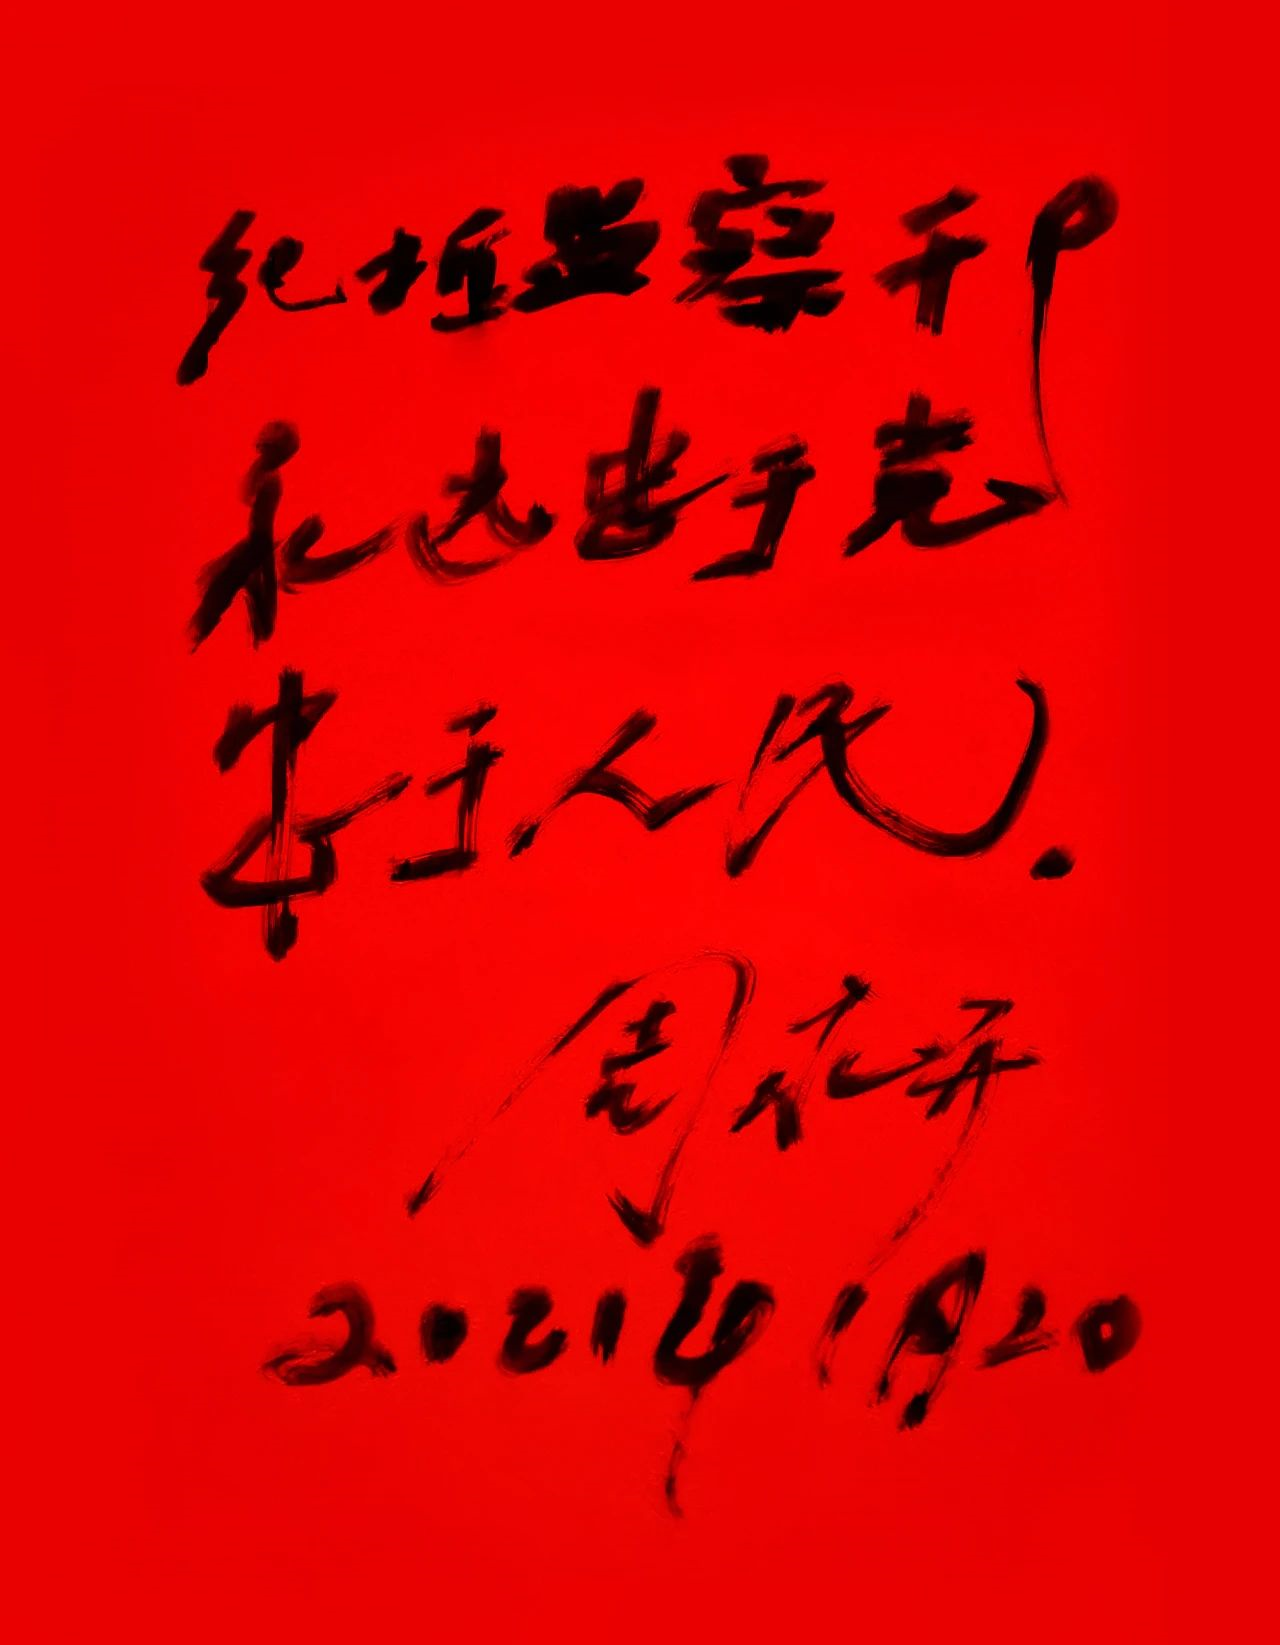 纪检监察干部
永远忠于党
忠于人民.
周永开
2021年1月20